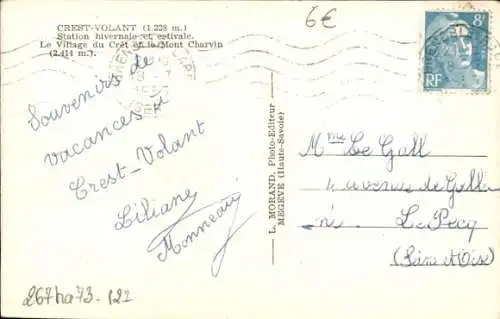 CREST-VOLANT (1.238 m.)
Station hivernale et estivale.
Le Village du Crêt et le Mont Charvin
(2.414 m.).
6€
8F
RF
Souvenirs de
vacances à
Crest-Volant
Liliane
Monneau
L. MORAND, Photo-Editeur
MEGEVE (Haute-Savoie)
Mme Le Gall
4 avenue de
Le Pecq
(Seine et Oise)
267ha73-122